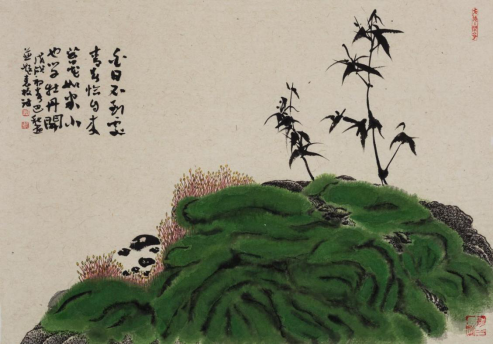 白日不到處
青春恰自来
苔花如米小
也学牡丹開
戊戌初春